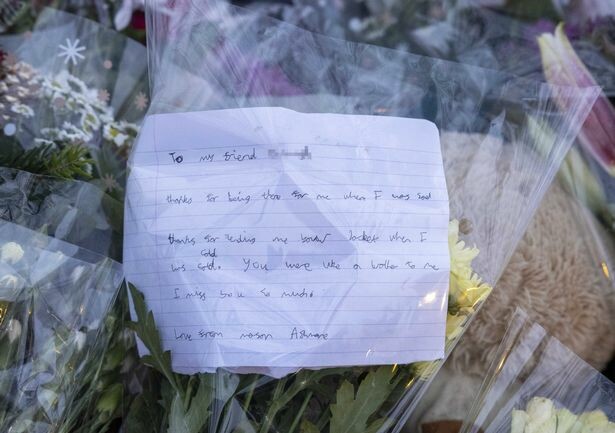 To my friend
thanks for being there for me when I was sad
thanks for lending me your Jacket when I
cold
was cold. You were like a brother to me
I miss you so much.
Love from mason Ashmore